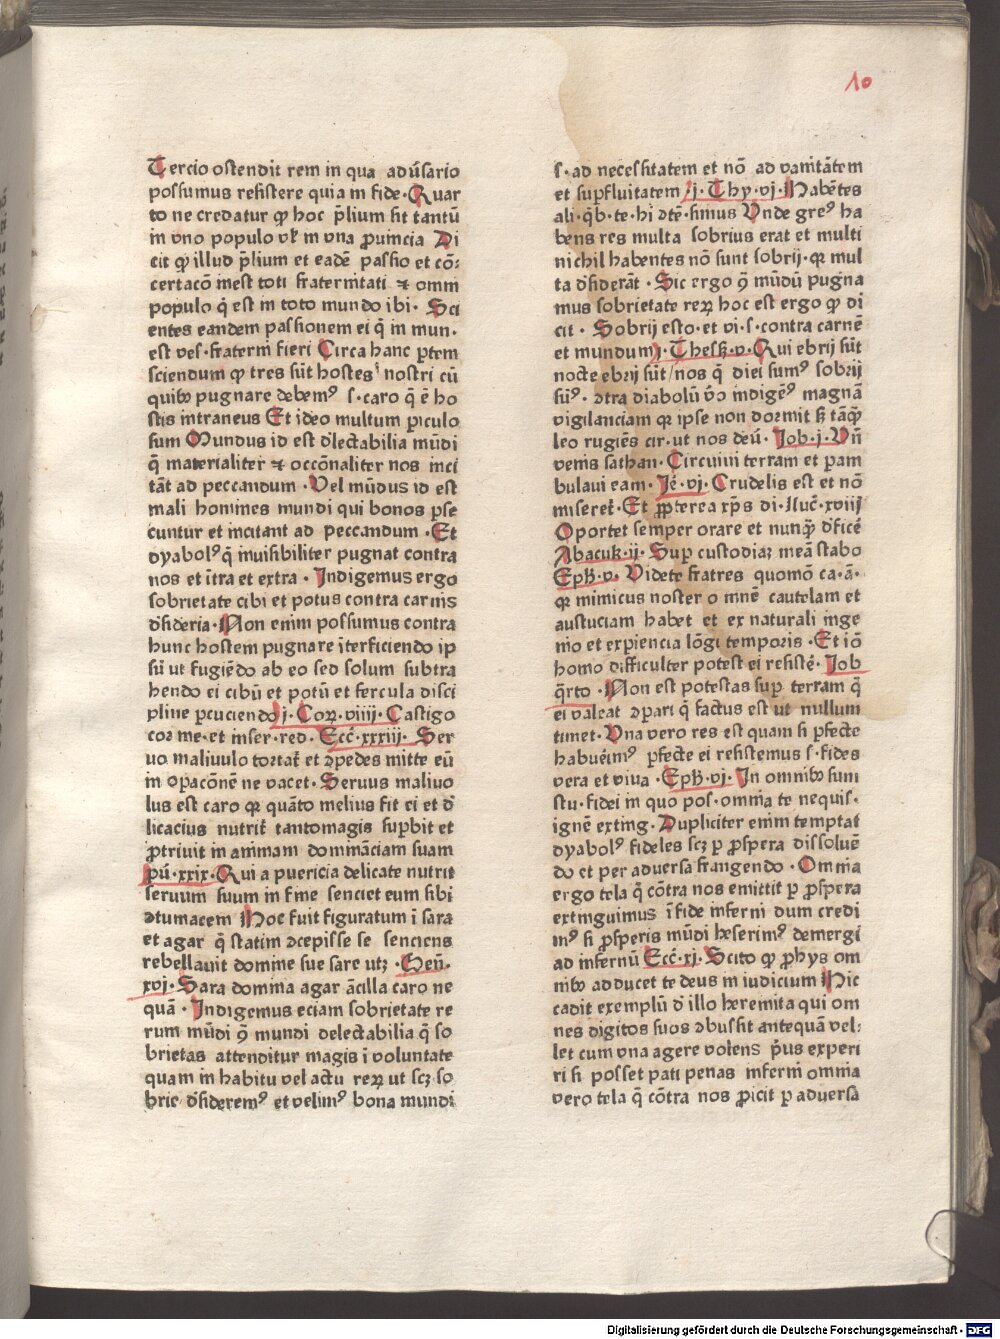 10
Tercio ostendit rem in qua adūsario
possumus resistere quia in fide · Quar
to ne credatur qꝙ hoc p̄lium sit tantū
in vno populo vl̕ in vna ꝓuincia Di
cit ꝙ illud p̄lium et eadē passio et cō⸗
certacō inest toti fraternitati ⁊ omni
populo q̄ est in toto mundo ibi · Sci
entes eandem passionem ei q̄ in mun·
est ves·fraterni fieri Circa hanc ꝑtem
sciendum ꝙ tres sūt hostes nostri cū
quibꝰ pugnare debemꝰ s·caro q̄ ē ho
stis intraneus Et ideo multum ꝑiculo
sum Mundus id est d̄lectabilia mūdi
q̄ materialiter ⁊ occōnaliter nos inci
tāt ad peccandum · Vel mūdus id est
mali homines mundi qui bonos ꝑse
cuntur et incitant ad peccandum · Et
dyabolꝰ q̄ inuisibiliter pugnat contra
nos et ītra et extra · Indigemus ergo
sobrietate cibi et potus contra carnis
d̄sideria · Non enim possumus contra
hunc hostem pugnare īterficiendo ip
sū ut fugiēdo ab eo sed solum subtra
hendo ei cibū et potū et fercula disci
pline ꝑcuciendo j · Coꝝ · viiij · Castigo
coꝛ me · et in ser · red · Ecc̄ · xxxiij · Ser
uo maliuulo tortur̄ et ꝯpedes mitte eū
in oꝑacōnē ne vacet · Seruus maliuo
lus est caro qꝛ quāto melius fit ei et d̄
licacius nutrit̄ tantomagis suꝑbit et
ꝓtriuit in animam dominciam suam
pū · xxix · Qui a puericia delicate nutrit
seruum suum in fine senciet eum sibi
ꝯtumacem Hoc fuit figuratum ī sara
et agar q̄ statim ꝯcepisse se senciens
rebellauit domine sue sare utꝫ · Gen̄ ·
xvj · Sara domina agar ācilla caro ne
quā · Indigemus eciam sobrietate re
rum mūdi ꝯ̄ mundi delectabilia q̄ so
brietas attenditur magis ī voluntate
quam in habitu vel actu reꝝ ut scꝫ so
brie d̄sideremꝰ et velimꝰ bona mundi
s · ad necessitatem et nō ad vanitātem
et suꝑfluitatem j · Thy · vj · Habētes
ali · q̄b · te · hi ꝯtē · simus Vnde greꝰ ha
bens res multa sobrius erat et multi
nichil habentes nō sunt sobrij · qꝛ mul
ta d̄siderāt · Sic ergo ꝯ̄ mūdū pugna
mus sobrietate reꝝ hoc est ergo ꝙ di
cit · Sobrij esto · et vi · s · contra carnē
et mundum j · Thess̄ · v · Qui ebrij sūt
nocte ebrij sūt / nos q̄ diei sumꝰ sobrij
siꝰ · ꝯtra diabolū v̄o indigēꝰ magnā
vigilanciam qꝛ ipse non dormit sꝫ tāꝙ̄
leo rugiēs cir · ut nos deū · Job · j · Vn̄
venis sathan · Circuiui terram et ꝑam
bulaui eam · Jē · vj · Crudelis est et nō
miseret̄ · Et ꝓpterea xp̄s di · Luc̄ · xviij
Oportet semper orare et nunꝙ̄ d̄ficē
Abacuk · ij · Suꝑ custodiaꝫ meā stabo
Eph̄ · v · Videte fratres quomō ca · ā ·
qꝛ inimicus noster o mnē cautelam et
austuciam habet et ex naturali inge
nio et exꝑiencia lōgi temporis · Et iō
homo difficulter potest ei resistē · Job
q̄rto · Non est potestas suꝑ terram q̄
ei valeat ꝯꝑari q̄ factus est ut nullum
timet · Vna vero res est quam si ꝑfecte
habuēimꝰ ꝑfecte ei resistemus s · fides
vera et viua · Eph̄ · vj · In omnibꝰ sum
stu · fidei in quo pos · omnia te nequis ·
ignē exting · Dupliciter enim temptat
dyabolꝰ fideles scꝫ ꝑ ꝓspera dissoluē
do et per aduersa frangendo · Omnia
ergo tela q̄ cōtra nos emittit ꝑ ꝓspera
extinguimus ī fide inferni dum credi
mꝰ si ꝓsperis mūdi heserimꝰ demergi
ad infernū Ecc̄ · xj · Scito ꝙ ꝓ hys om
nibꝰ adducet te deus in iudicium Hic
cadit exemplū d̄ illo heremita qui om
nes digitos suos ꝯbussit antequā vel⸗
let cum vna agere volens p̄us experi
ri si posset pati penas inferni omnia
vero tela q̄ cōtra nos ꝓicit ꝑ aduersa
Digitalisierung gefördert durch die Deutsche Forschungsgemeinschaft - DFG